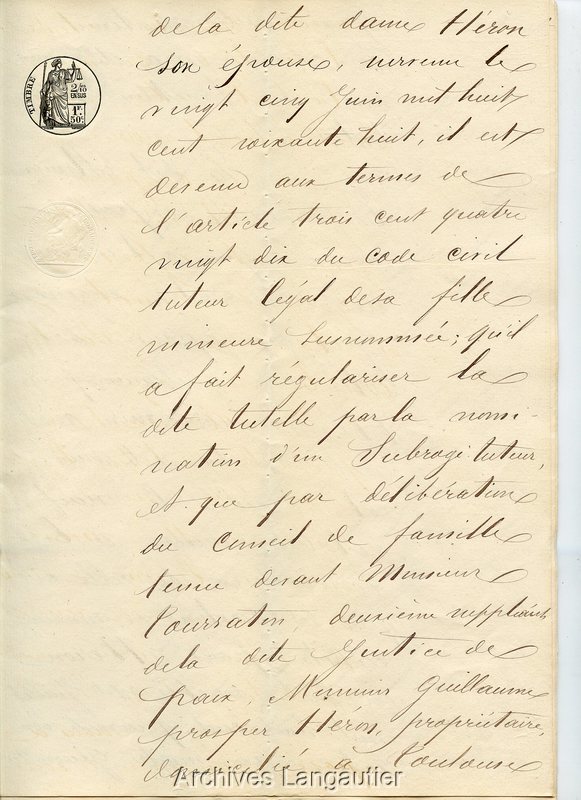 de la dite dame Héron
son épouse, survenu le
vingt cinq Juin mil huit
cent soixante huit, il est
devenu aux termes de
l'article trois cent quatre
vingt dix du code civil
tuteur légal de sa fille
mineure susnommée; qu'il
a fait régulariser la
dite tutelle par la nomi-
nation d'un Subrogé tuteur,
et que par délibération
du Conseil de famille
tenue devant Monsieur
deuxième suppléant
de la dite Justice de
paix, Monsieur Guillaume
prosper Héron, propriétaire,
domicilié à Toulouse
TIMBRE
2/10
EN SUS
1F
50c
Archives Langautier